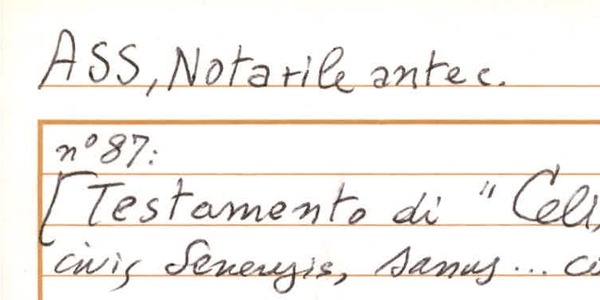 ASS, Notarile antec.
n° 87:
[Testamento di "Celi
civis Senensis, sanus... co